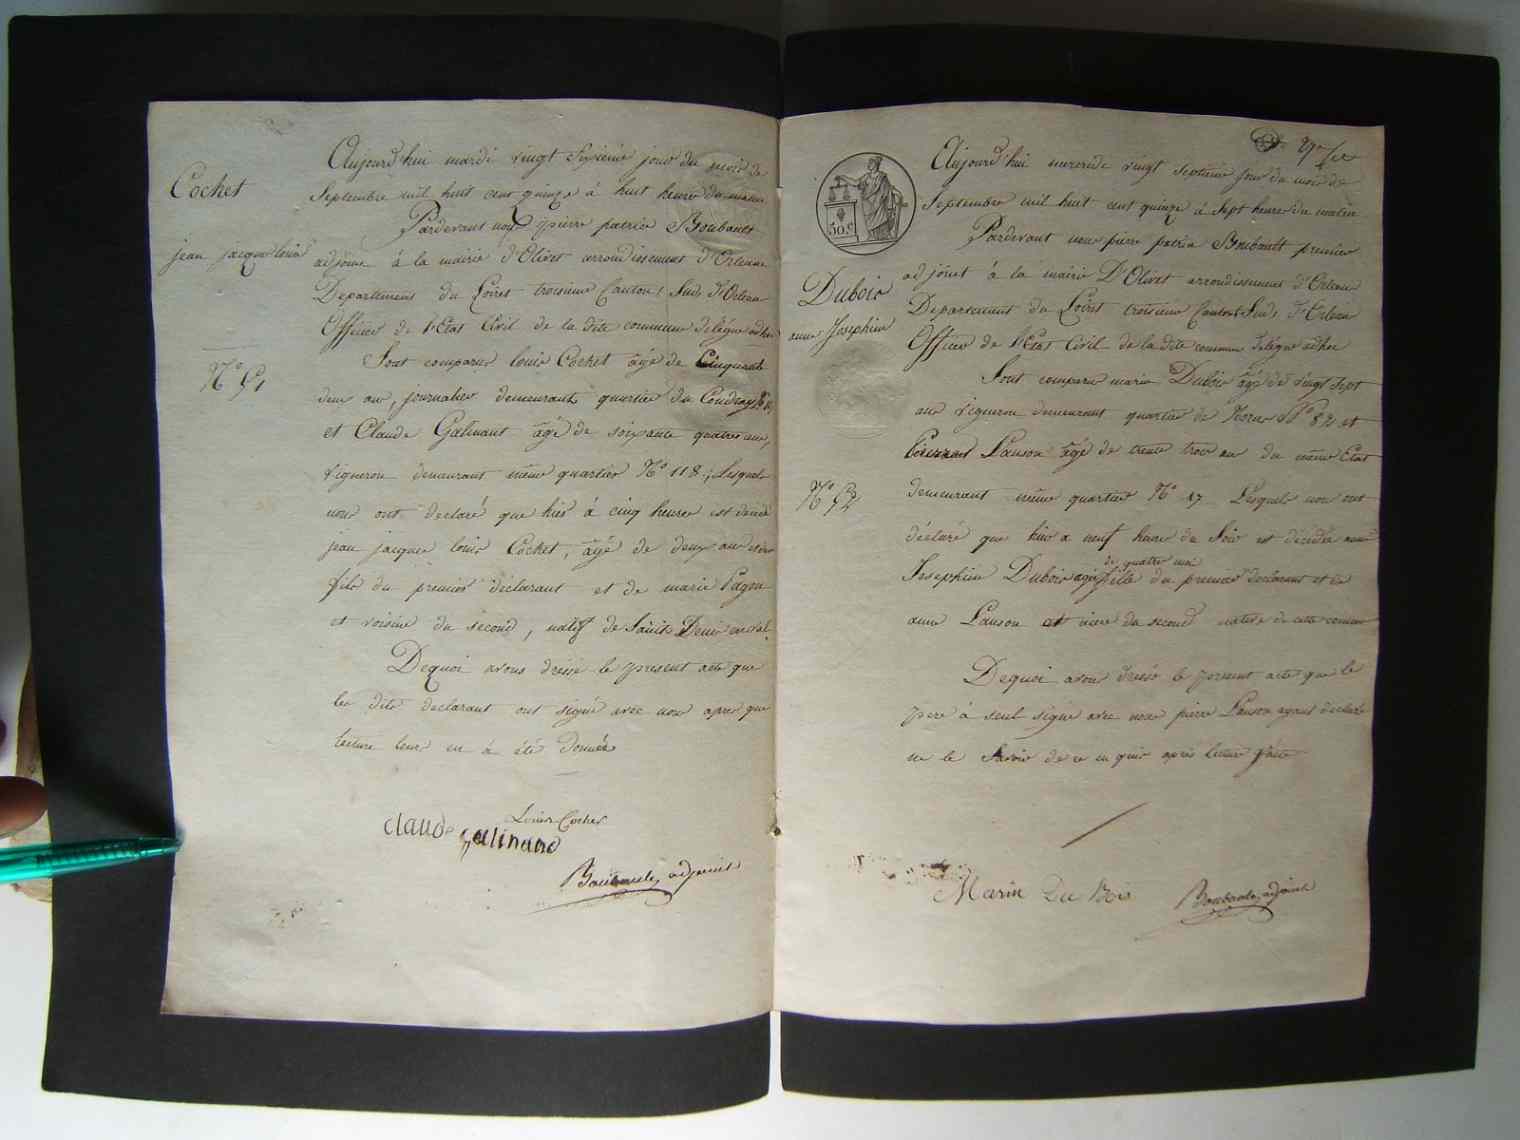 Cochet
jean jacque louis
N.° 51
Aujourd'hui mardi vingt sixieme jour du mois de
Septembre mil huit cent quinze à huit heure du matin
Pardevant nous pierre patrice Boubault
adjoint à la mairie d'Olivet arrondissement d'Orleans
Departement du Loiret troisieme Canton Sud d'Orleans
Officier de l'Etat Civil de la dite commune délégué ad hoc
Sont comparus louis Cochet âgé de Cinquante
deux ans, journalier demeurant quartier du Coudray
et Claude Galinant âgé de soixante quatre ans,
vigneron demeurant même quartier N.° 118; Lesquels
nous ont declaré que hier à cinq heures est décédé
jean jacque louis Cochet, âgé de deux ans et demi
fils du premier déclarant et de marie Pagou
et voisin du second, natif de Saint Denis en val.
Dequoi avons dressé le present acte que
les dits declarant ont signé avec nous apres que
lecture leur en à été donnée
Louis Cochet
claude galinand
Boubault adjoint
50 c
Dubois
anne Josephine
N.° 52
Aujourd'hui mercredi vingt septieme jour du mois de
Septembre mil huit cent quinze à Sept heure du matin
Pardevant nous pierre patrice Boubault premier
adjoint à la mairie D'Olivet arrondissement d'Orleans
Departement du Loiret troisieme Canton Sud d'Orleans
Officier de l'Etat Civil de la dite commune délégué ad hoc
Sont comparu marin Dubois âgé de vingt sept
ans vigneron demeurant quartier de N.° 82 et
Lauson âgé de trente trois ans du même Etat
demeurant même quartier N.° 17 Lesquels nous ont
déclaré que hier a neuf heure du Soir est décédée anne
de quatre moi
Josephine Dubois agée fille du premier declarant et de
anne Lauson et niece du second native de cette commune
Dequoi avons dressé le present acte que le
pere à seul signé avec nous pierre Lauson ayant declaré
ne le Savoir de ce enquis après lecture faite
Marin Du Bois
Boubault adjoint